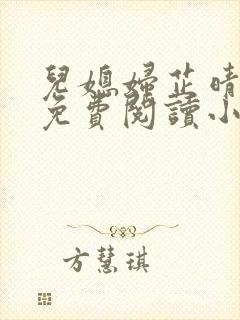 兒媳婦芷晴
免費閱讀小
方慧琪